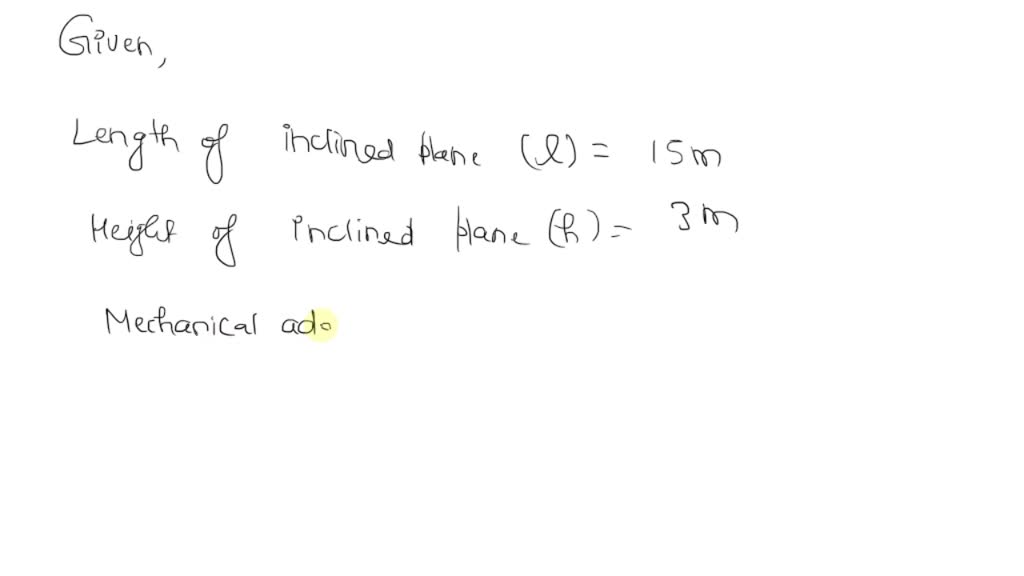 Given,
Length of inclined plane (l) = 15m
Height of inclined plane (h) = 3m
Mechanical ado